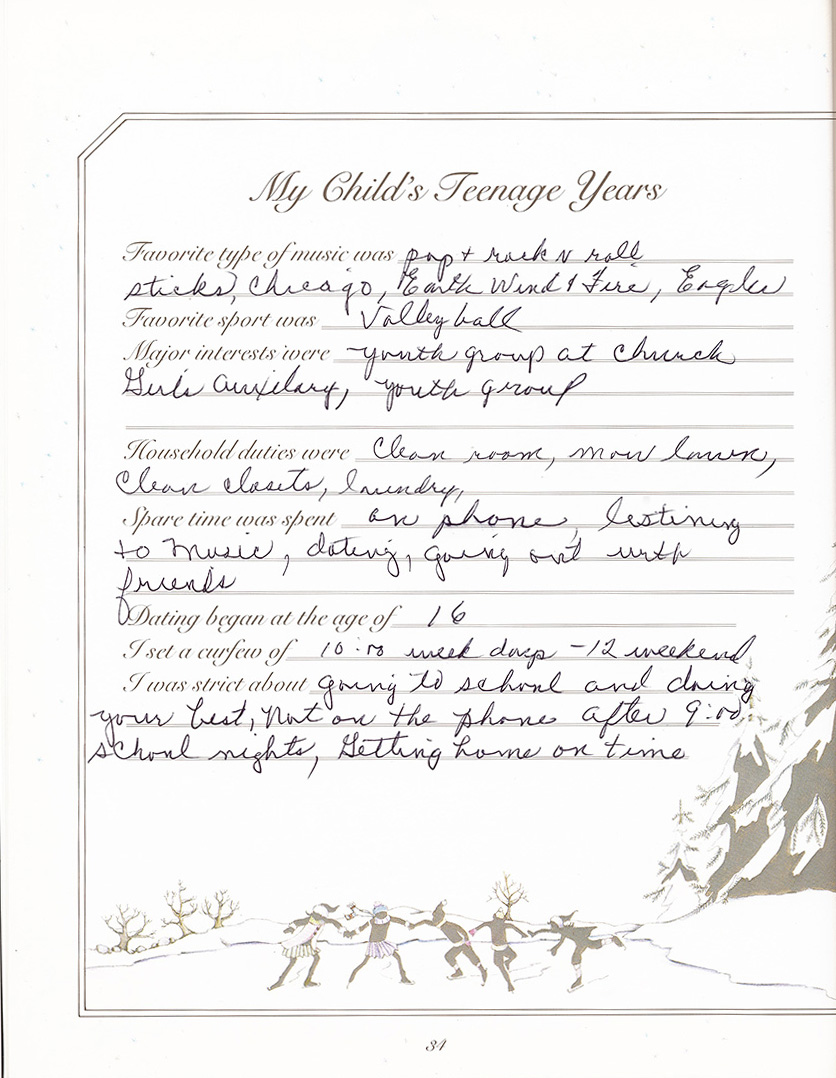 My Child's Teenage Years
Favorite type of music was pop + rock n roll
sticks, Chicago, Earth Wind & Fire, Eagles
Favorite sport was Volley ball
Major interests were youth group at church
Girls Auxilary, youth group
Household duties were Clean room, mow lawn,
Clean closets, laundry,
Spare time was spent on phone, lestining
to music, dating, going out with
friends
Dating began at the age of 16
I set a curfew of 10:00 week days - 12 weekend
I was strict about going to school and doing
your best, Not on the phone after 9:00
school nights, Getting home on time
34